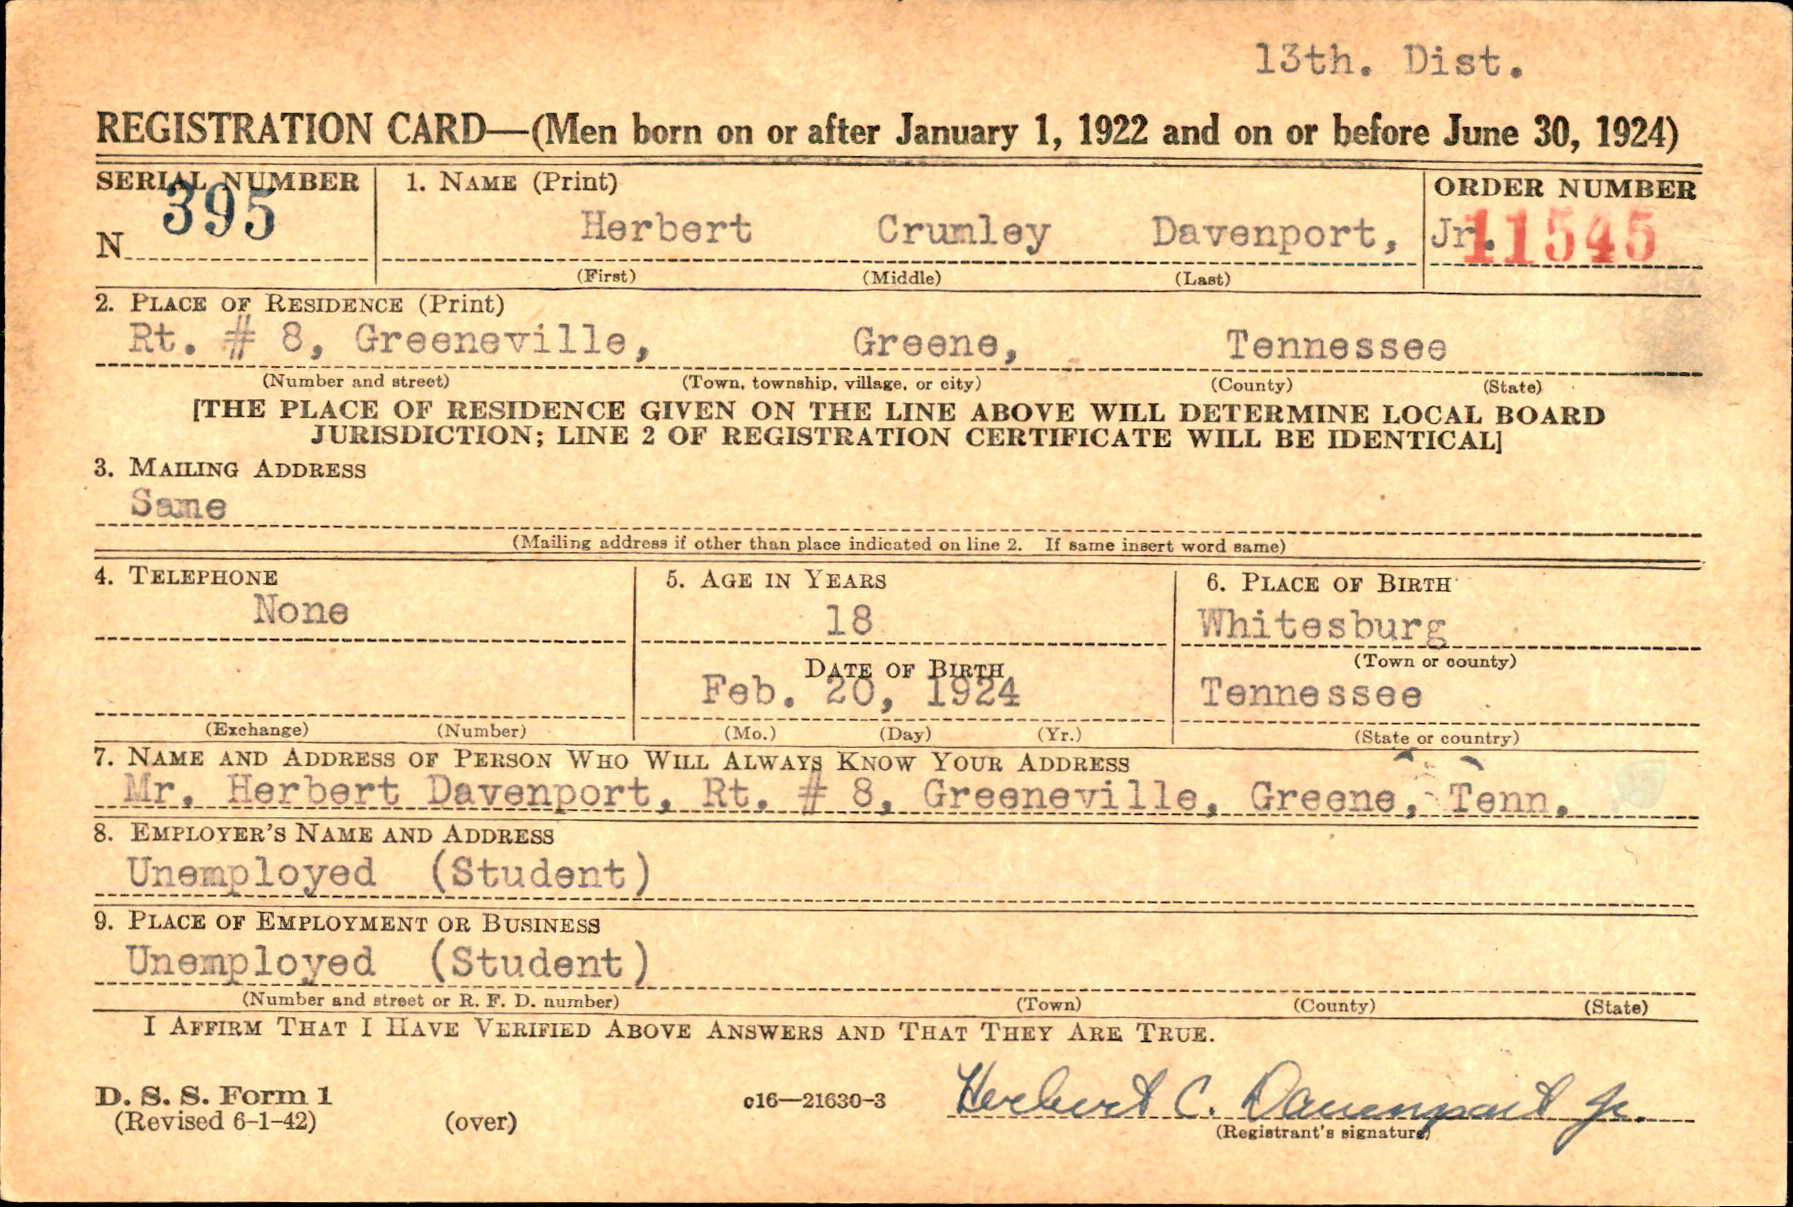 13th. Dist.
REGISTRATION CARD—(Men born on or after January 1, 1922 and on or before June 30, 1924)
SERIAL NUMBER 1. NAME (Print) ORDER NUMBER
N 395 Herbert Crumley Davenport, Jr. 11545
(First) (Middle) (Last)
2. PLACE OF RESIDENCE (Print)
Rt. # 8, Greeneville, Greene, Tennessee
(Number and street) (Town, township, village, or city) (County) (State)
[THE PLACE OF RESIDENCE GIVEN ON THE LINE ABOVE WILL DETERMINE LOCAL BOARD
JURISDICTION; LINE 2 OF REGISTRATION CERTIFICATE WILL BE IDENTICAL]
3. MAILING ADDRESS
Same
(Mailing address if other than place indicated on line 2. If same insert word same)
4. TELEPHONE 5. AGE IN YEARS 6. PLACE OF BIRTH
None 18 Whitesburg
DATE OF BIRTH (Town or county)
Feb. 20, 1924 Tennessee
(Exchange) (Number) (Mo.) (Day) (Yr.) (State or country)
7. NAME AND ADDRESS OF PERSON WHO WILL ALWAYS KNOW YOUR ADDRESS
Mr. Herbert Davenport, Rt. # 8, Greeneville, Greene, Tenn.
8. EMPLOYER'S NAME AND ADDRESS
Unemployed (Student)
9. PLACE OF EMPLOYMENT OR BUSINESS
Unemployed (Student)
(Number and street or R. F. D. number) (Town) (County) (State)
I AFFIRM THAT I HAVE VERIFIED ABOVE ANSWERS AND THAT THEY ARE TRUE.
D. S. S. Form 1 c16—21630-3 Herbert C. Davenport Jr.
(Revised 6-1-42) (over) (Registrant's signature)